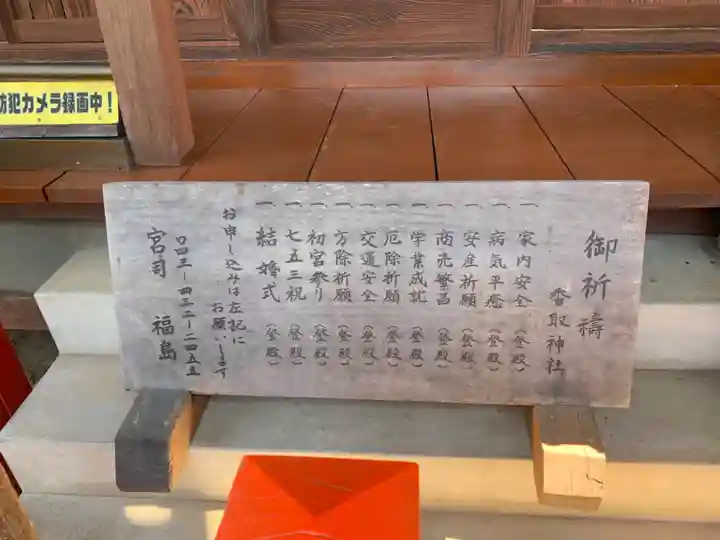 防犯カメラ録画中!
御祈禱
香取神社
一 家内安全(登殿)
一 病気平癒(登殿)
一 安産祈願(登殿)
一 商売繁昌(登殿)
一 学業成就(登殿)
一 厄除祈願(登殿)
一 交通安全(登殿)
一 方除祈願(登殿)
一 初宮参り(登殿)
一 七五三祝(登殿)
一 結婚式(登殿)
お申し込みは左記に
お願いします
〇四三-四三二-二四五五
宮司 福島